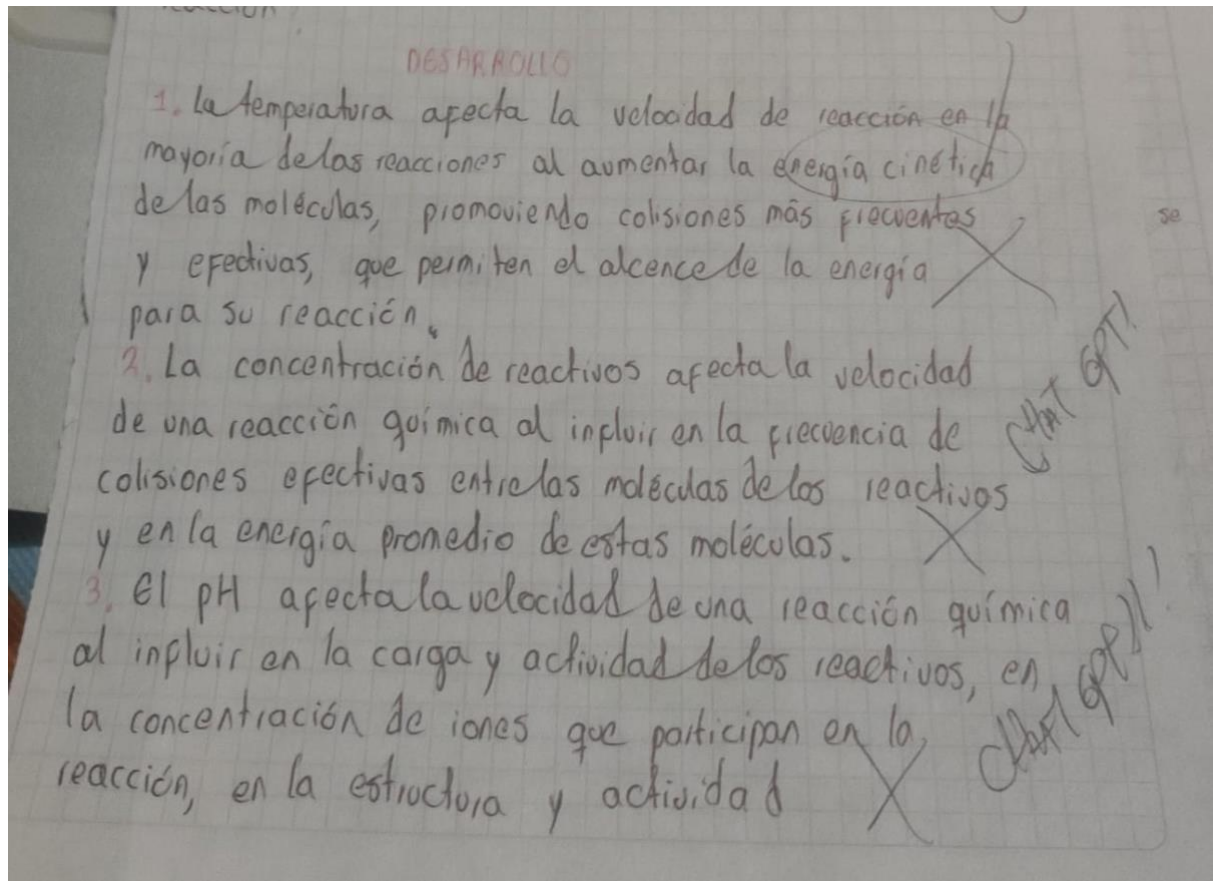 DESARROLLO
1. La temperatura afecta la velocidad de reacción en la
mayoria de las reacciones al aumentar la energía cinética
de las moléculas, promoviendo colisiones más frecuentes
y efectivas, que permiten el alcence de la energía
para su reacción.
se
2. La concentración de reactivos afecta la velocidad
de una reacción química al influir en la frecuencia de
colisiones efectivas entre las moléculas de los reactivos
y en la energía promedio de estas moléculas.
CHAT GPT!
3. El pH afecta la velocidad de una reacción química
al influir en la carga y actividad de los reactivos, en
la concentración de iones que participan en la
reacción, en la estructura y actividad
CHAT GPT!!